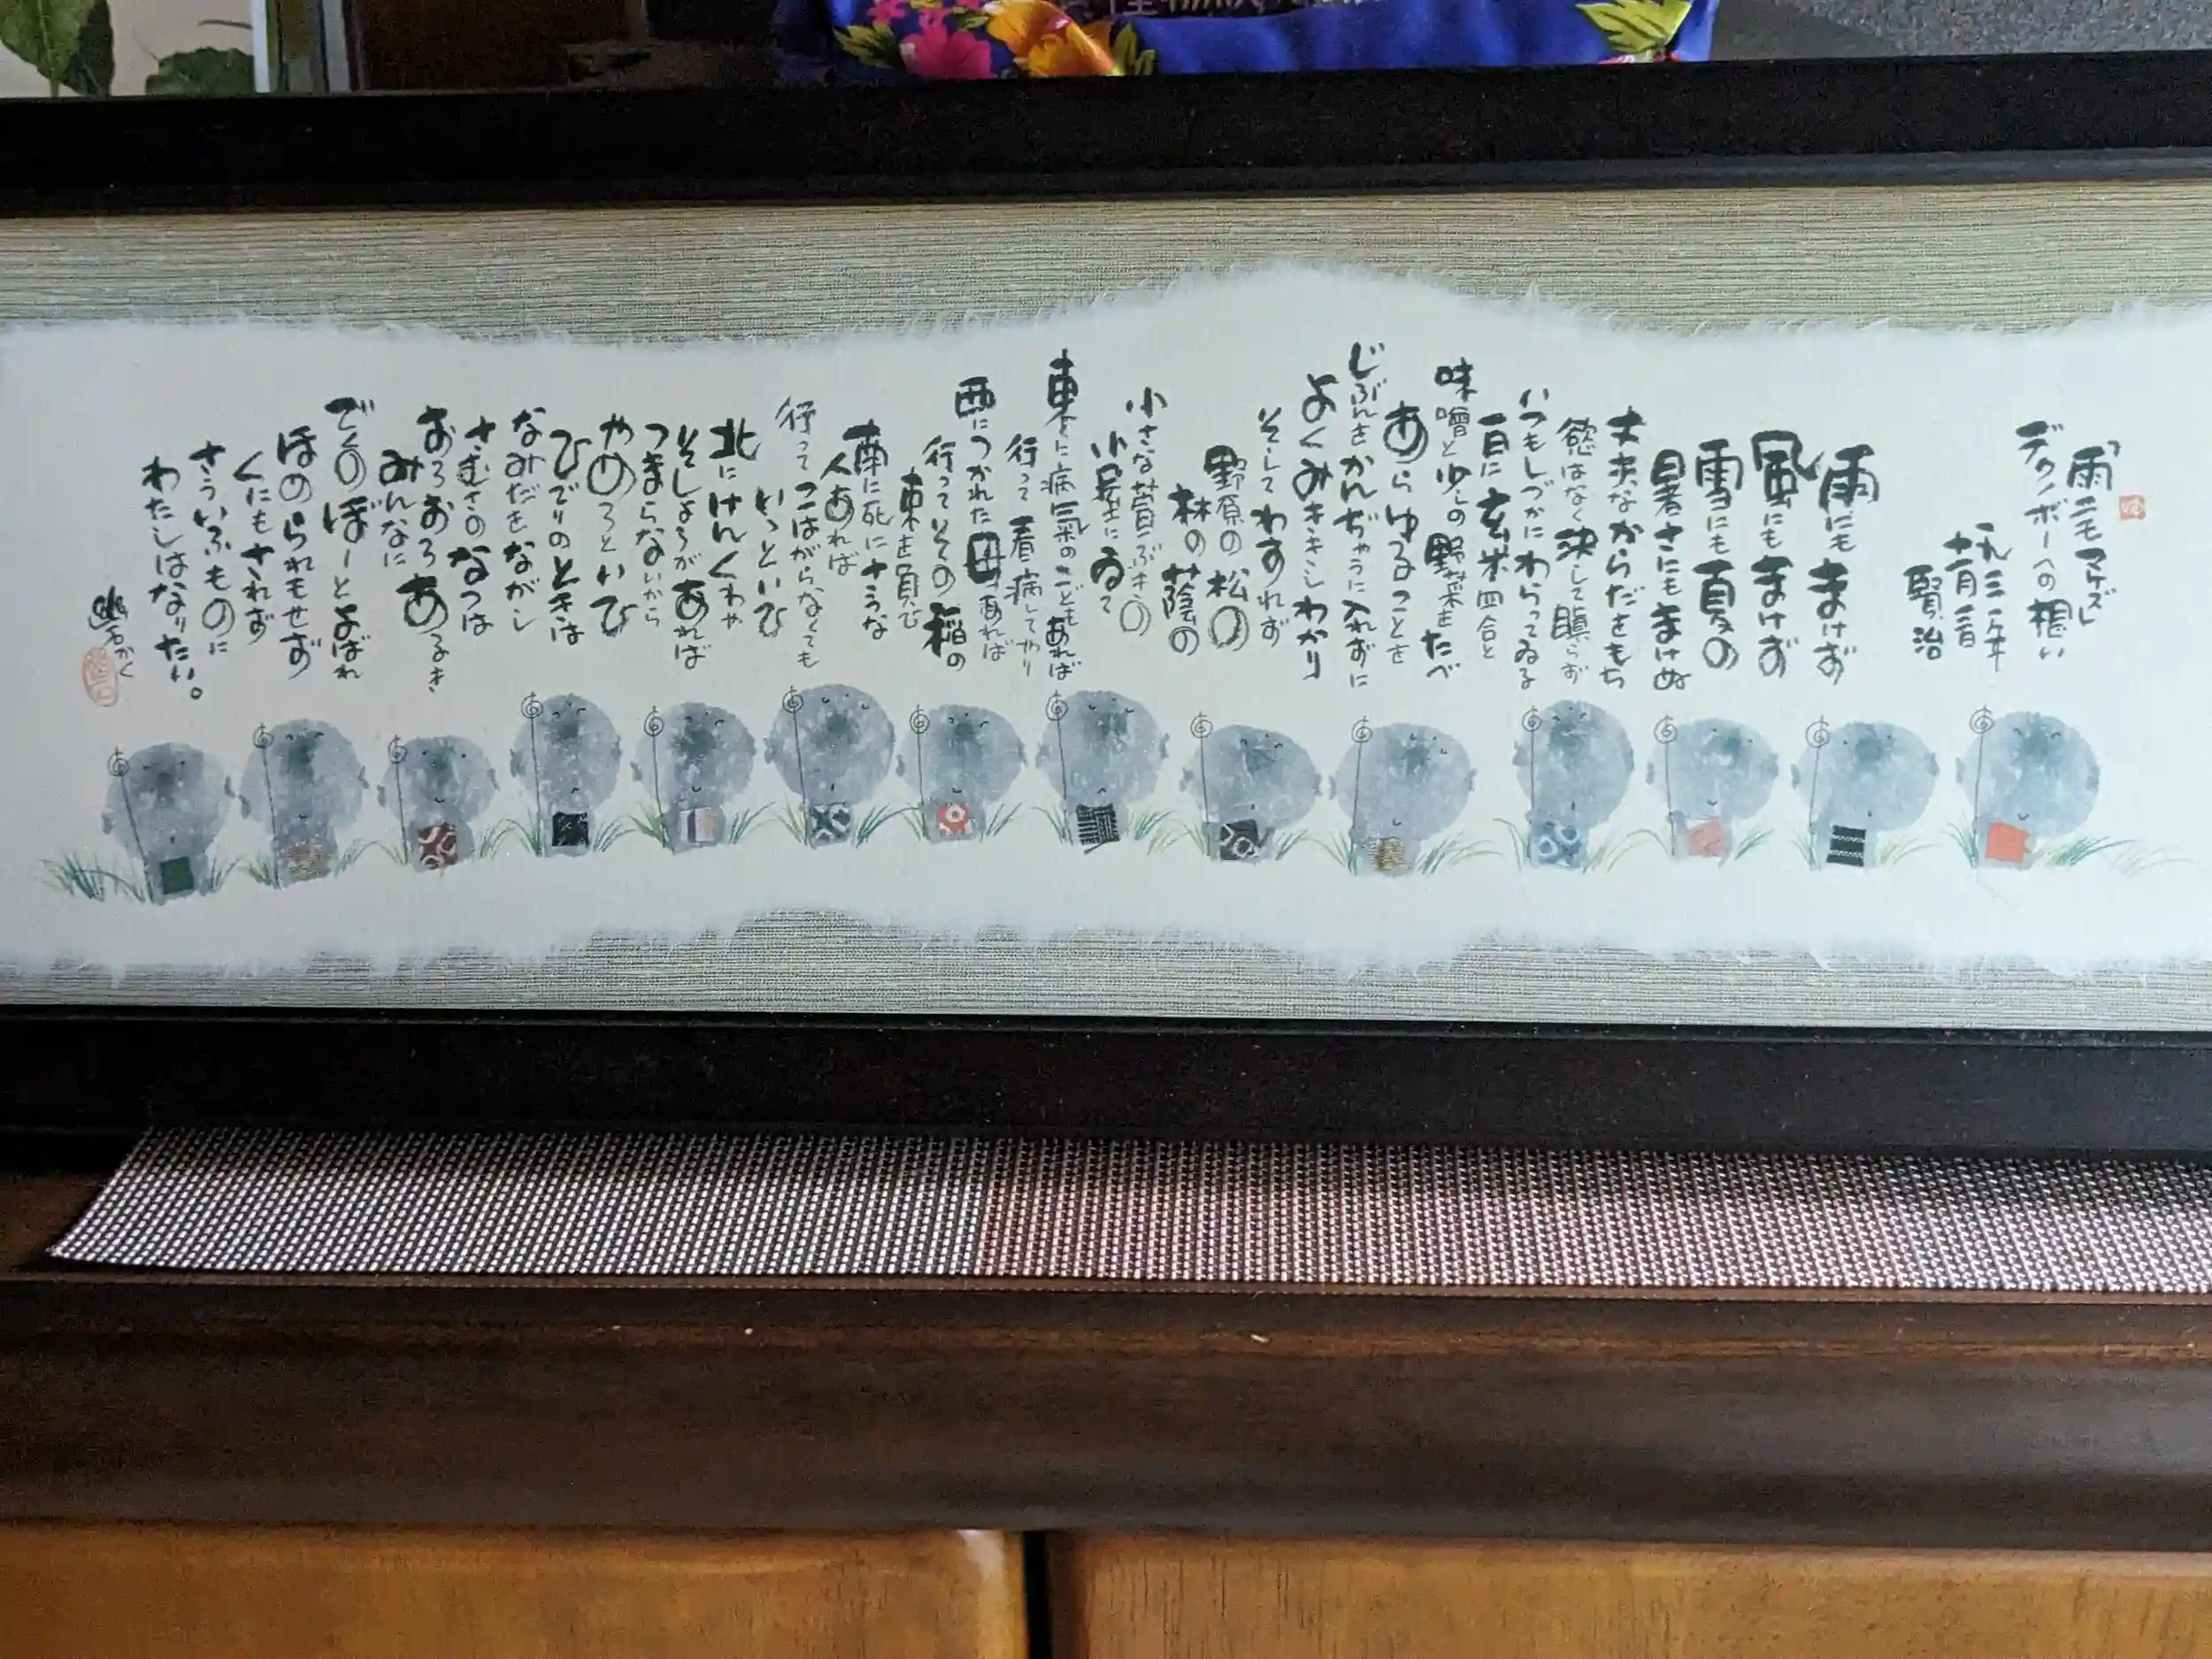 雨ニモマケズ
デクノボーへの想い
一九三一年
十一月三日
賢治
雨にもまけず
風にもまけず
雪にも夏の
暑さにもまけぬ
丈夫なからだをもち
慾はなく決して瞋らず
いつもしづかにわらってゐる
一日に玄米四合と
味噌と少しの野菜をたべ
あらゆることを
じぶんをかんぢゃうに入れずに
よくみききしわかり
そしてわすれず
野原の松の
林の蔭の
小さな萱ぶきの
小屋にゐて
東に病氣のこどもあれば
行って看病してやり
西につかれた母あれば
行ってその稲の
束を負ひ
南に死にさうな
人あれば
行ってこはがらなくても
いゝといひ
北にけんくわや
そしょうがあれば
つまらないから
やめろといひ
ひでりのときは
なみだをながし
さむさのなつは
おろおろあるき
みんなに
でくのぼーとよばれ
ほめられもせず
くにもされず
さういふものに
わたしはなりたい。
かく